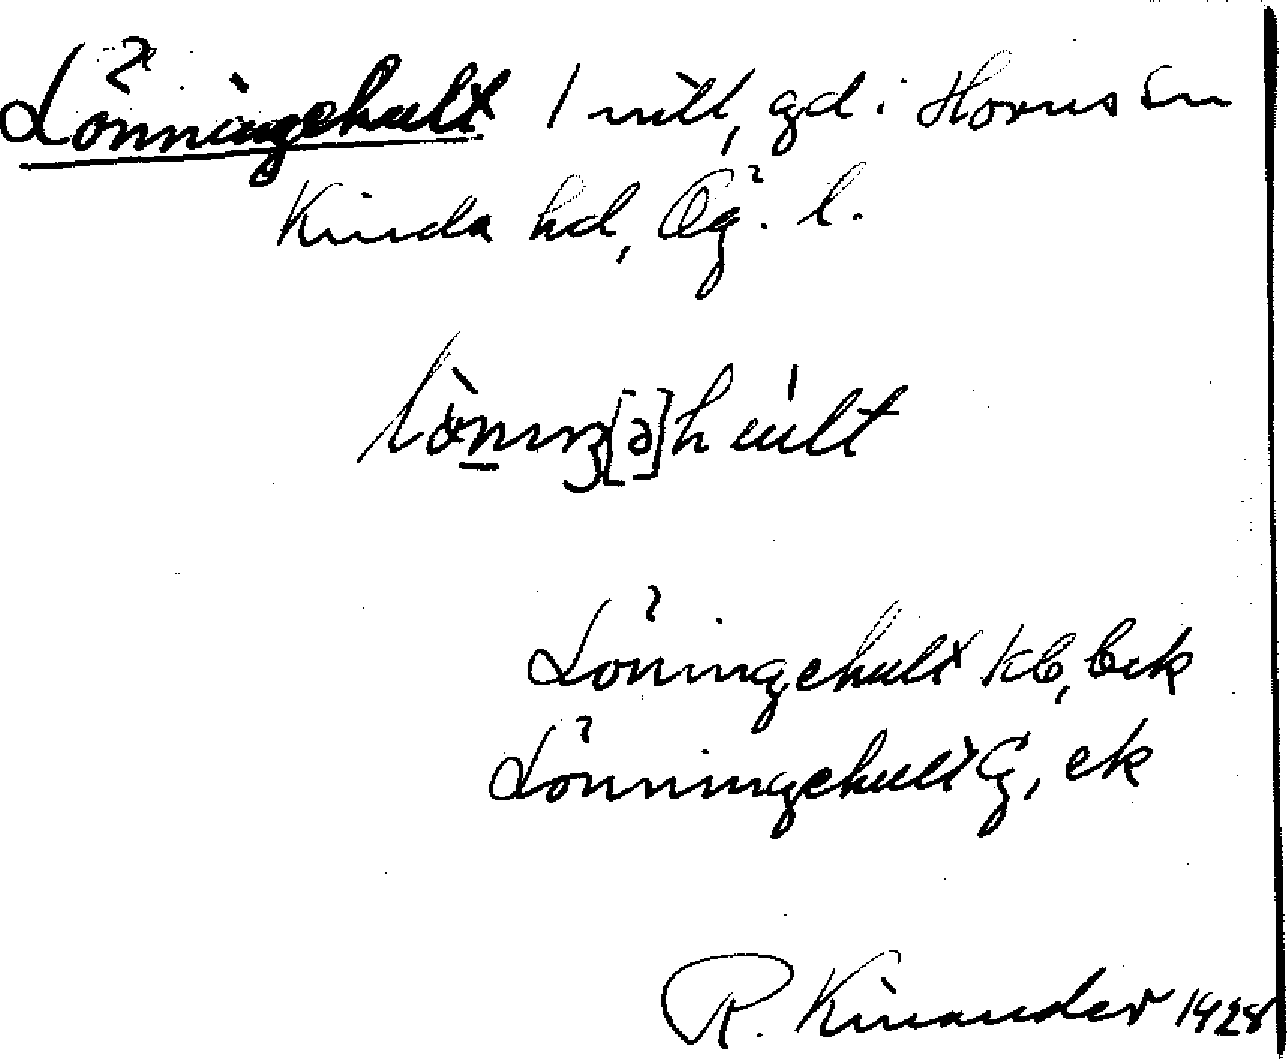 Lönningehult 1 mtl, gd i Horns sn
Kinda hd, Ög. l.
lònıŋ[ə]húlt
Löningehult kb, bek
Lönningehult G, ek
R. Kinander 1928